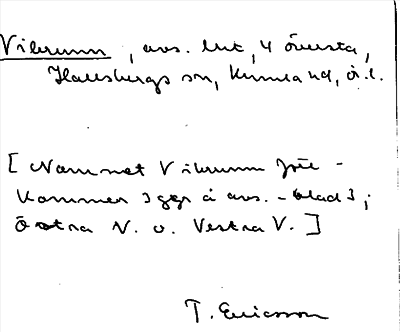 Vikrunn, avs. lht, 4 Översta,
Hallsbergs sn, Kumla hd, Ö.l.
[Namnet Vikrunn före-
kommer 3 ggr å avs. -blad 3;
Östra N. o. Vestra V.]
T. Ericsson